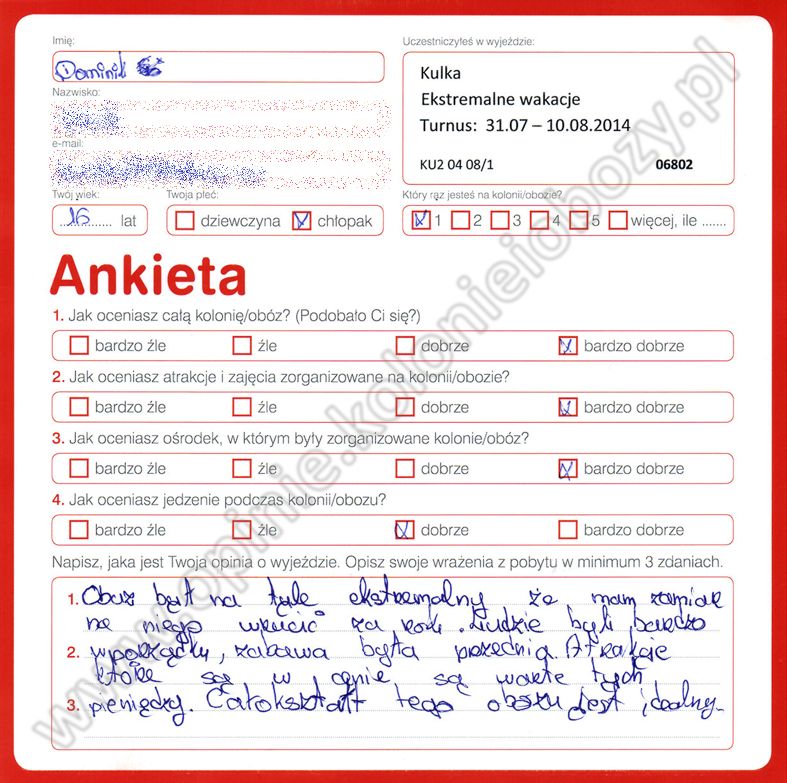 Imię:
Dominik
Uczestniczyłeś w wyjeździe:
Kulka
Ekstremalne wakacje
Turnus: 31.07 – 10.08.2014
KU2 04 08/1 06802
Nazwisko:
e-mail:
Twój wiek:
16 lat
Twoja płeć:
dziewczyna chłopak
Który raz jesteś na kolonii/obozie?
1 2 3 4 5 więcej, ile .......
Ankieta
1. Jak oceniasz całą kolonię/obóz? (Podobało Ci się?)
bardzo źle źle dobrze bardzo dobrze
2. Jak oceniasz atrakcje i zajęcia zorganizowane na kolonii/obozie?
bardzo źle źle dobrze bardzo dobrze
3. Jak oceniasz ośrodek, w którym były zorganizowane kolonie/obóz?
bardzo źle źle dobrze bardzo dobrze
4. Jak oceniasz jedzenie podczas kolonii/obozu?
bardzo źle źle dobrze bardzo dobrze
Napisz, jaka jest Twoja opinia o wyjeździe. Opisz swoje wrażenia z pobytu w minimum 3 zdaniach.
1. Obuz był na tyle ekstremalny że mam zamiar
na niego wrucić za rok. Ludzie byli bardzo
2. wporządku, zabawa była przednia. Atrakcje
które są w cenie są warte tych
3. pieniędzy. Całokształt tego obozu jest idealny.
www.opinie.kolonieiobozy.pl